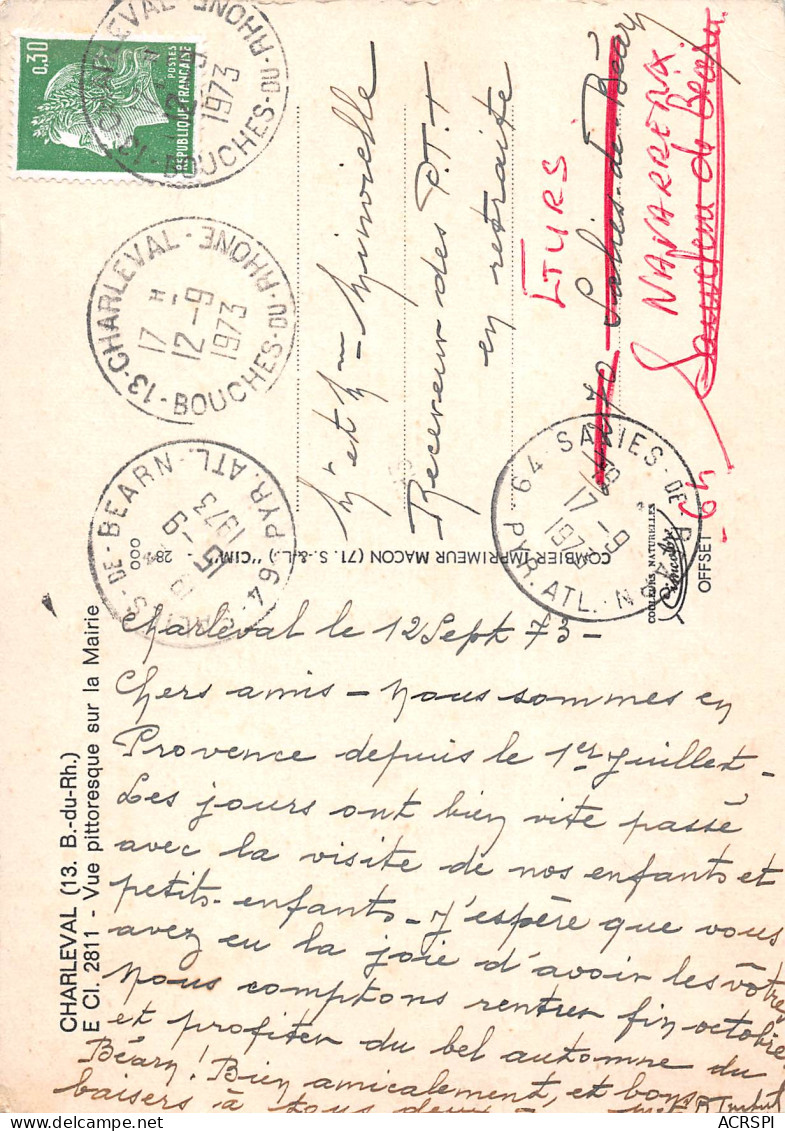 CHARLEVAL (13. B.-du-Rh.)
E CI. 2811 - Vue pittoresque sur la Mairie
Charleval le 12 Sept 73 -
Chers amis - Nous sommes en
Provence depuis le 1er Juillet -
Les jours ont bien vite passé
avec la visite de nos enfants et
petits-enfants - J'espère que vous
avez eu la joie d'avoir les vôtres
Nous comptons rentrer fin octobre
et profiter du bel automne du
Béarn! Bien amicalement, et bons
baisers à tous deux -
COMBIER IMPRIMEUR MACON (71. S.-&-L.) "CIM"
0,30
POSTES
REPUBLIQUE FRANÇAISE
13 CHARLEVAL
BOUCHES-DU-RHONE
1973
13-CHARLEVAL
17 H
12-9
1973
BOUCHES-DU-RHONE
DE-BEARN
15-9
1973
64 PYR. ATL.
Mr et Mme Minvielle
Receveur des P.T.T
en retraite
LTURS
Salies-de-Béarn
NAVARRENX
Sauveterre de Béarn
64
64-SALIES-DE-BEARN
17-9
1973
PYR. ATL.
COULEURS NATURELLES
OFFSET
ACRSPI